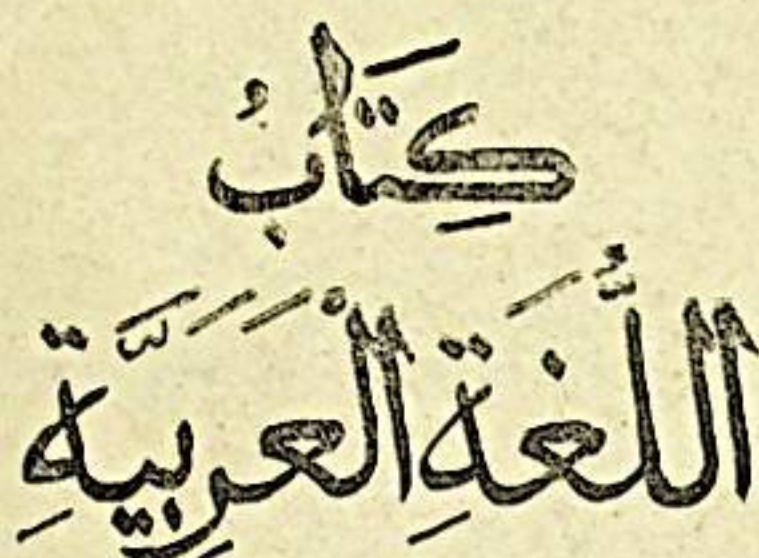 كِتَابُ
اللُّغَةِ الْعَرَبِيَّةِ